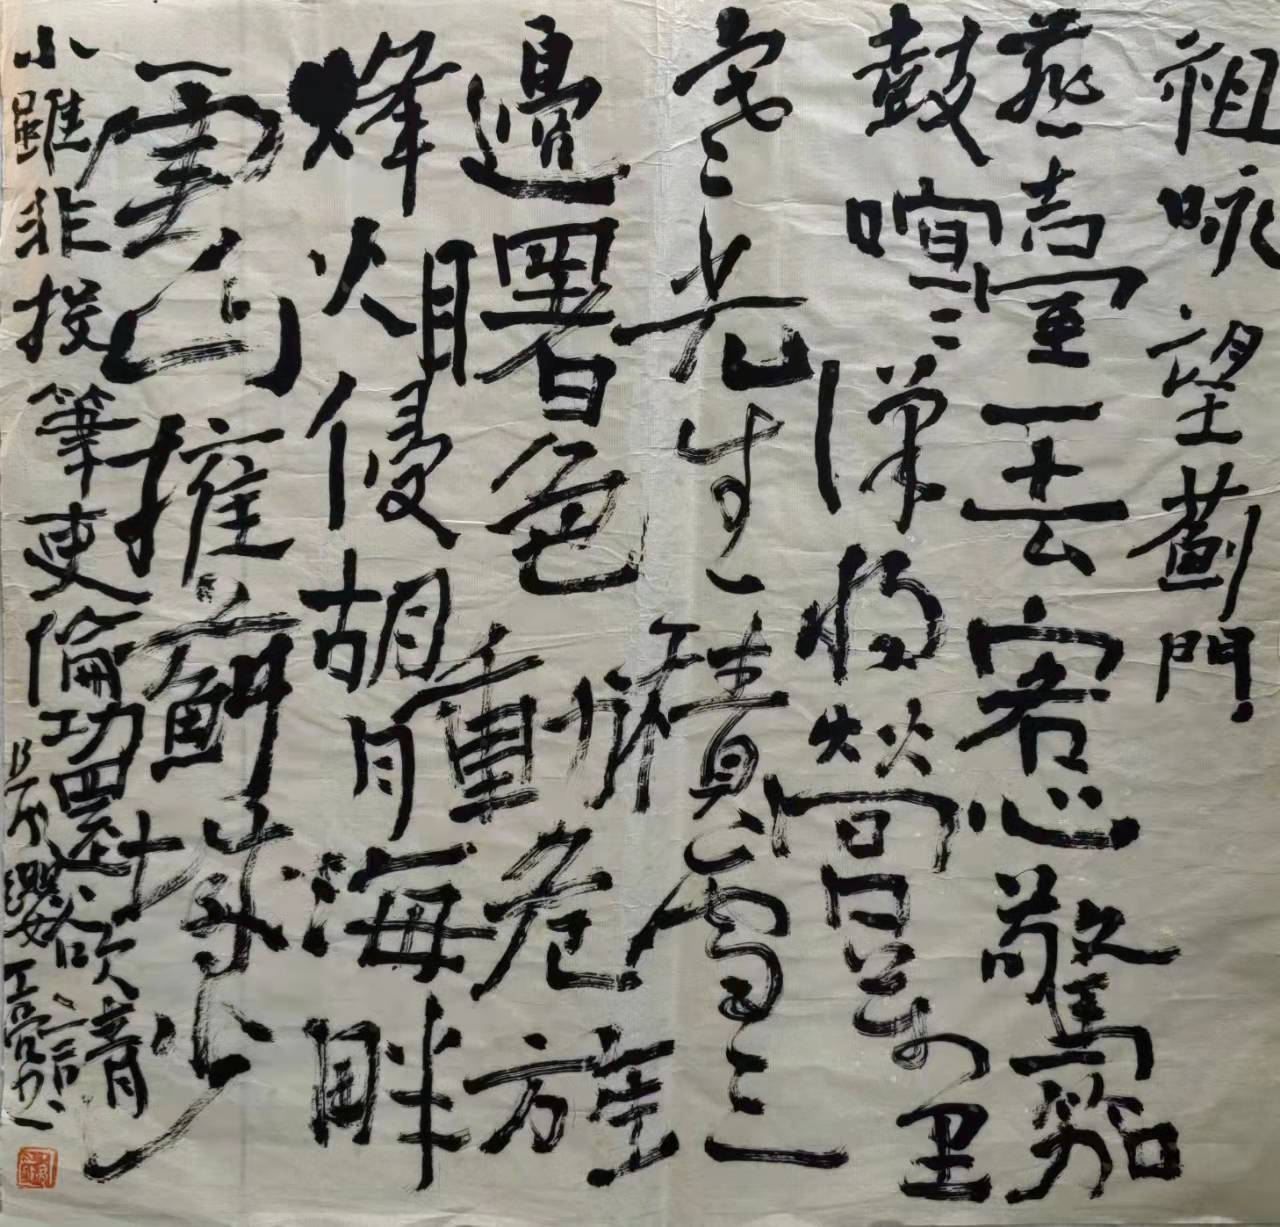 祖咏望薊門
燕臺一去客心驚笳
鼓喧〻漢将營萬里
寒光生積雪三
邊曙色動危旌
烽火侵胡月海畔
雲山擁薊城少
小雖非投筆吏倫功還欲請